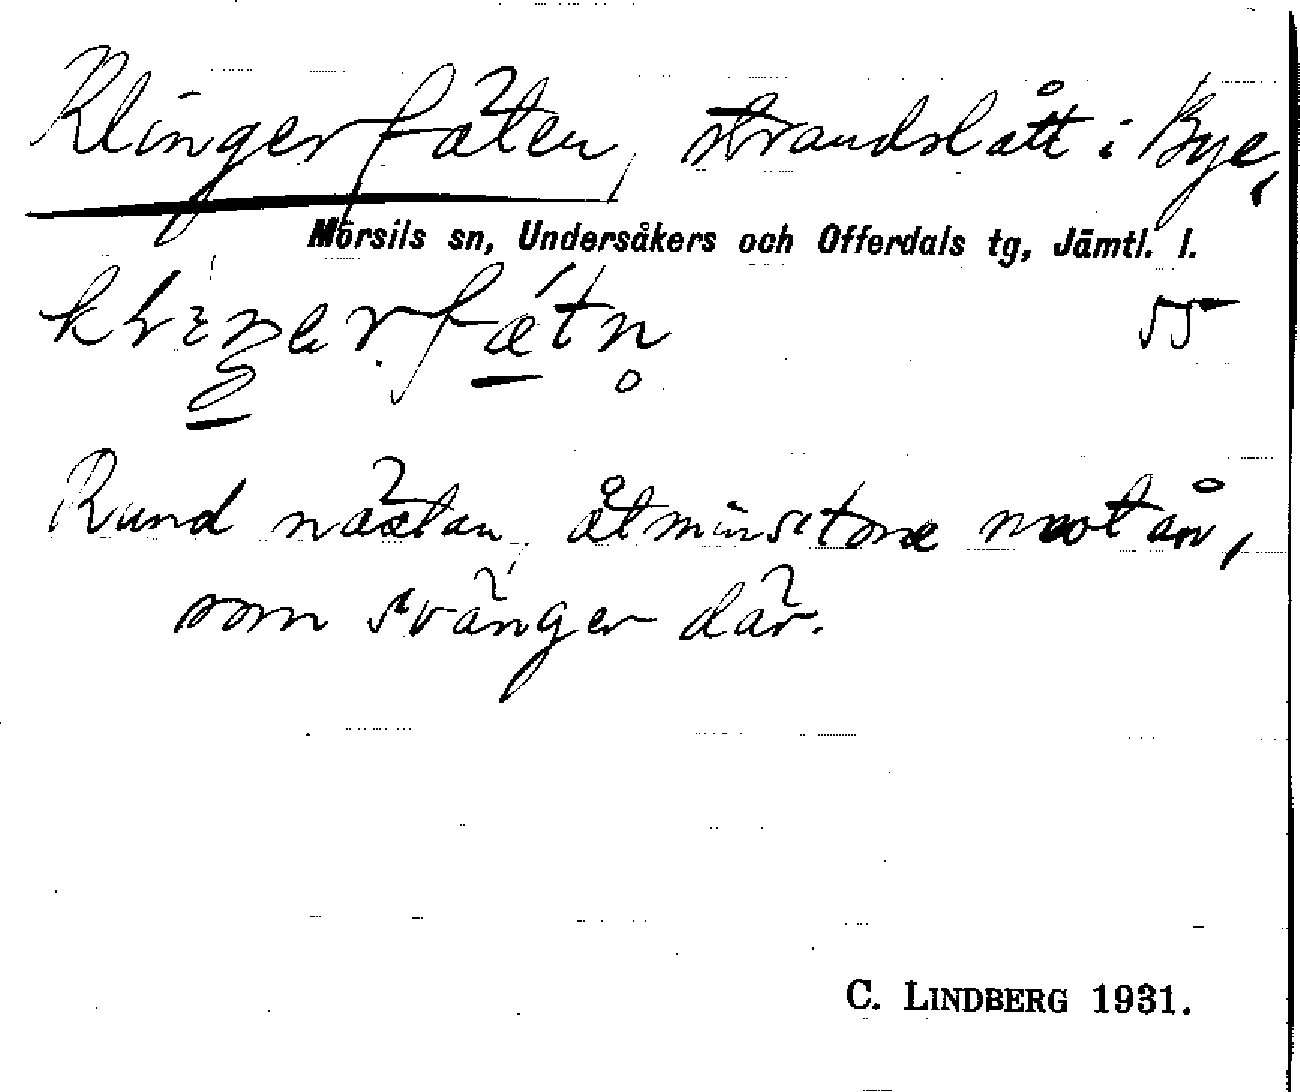 Klingerfäten, strandslått i Bye,
Mörsils sn, Undersåkers och Offerdals tg, Jämtl. l.
55
Rund nästan, åtminstone mot ån,
som svänger där.
C. LINDBERG 1931.